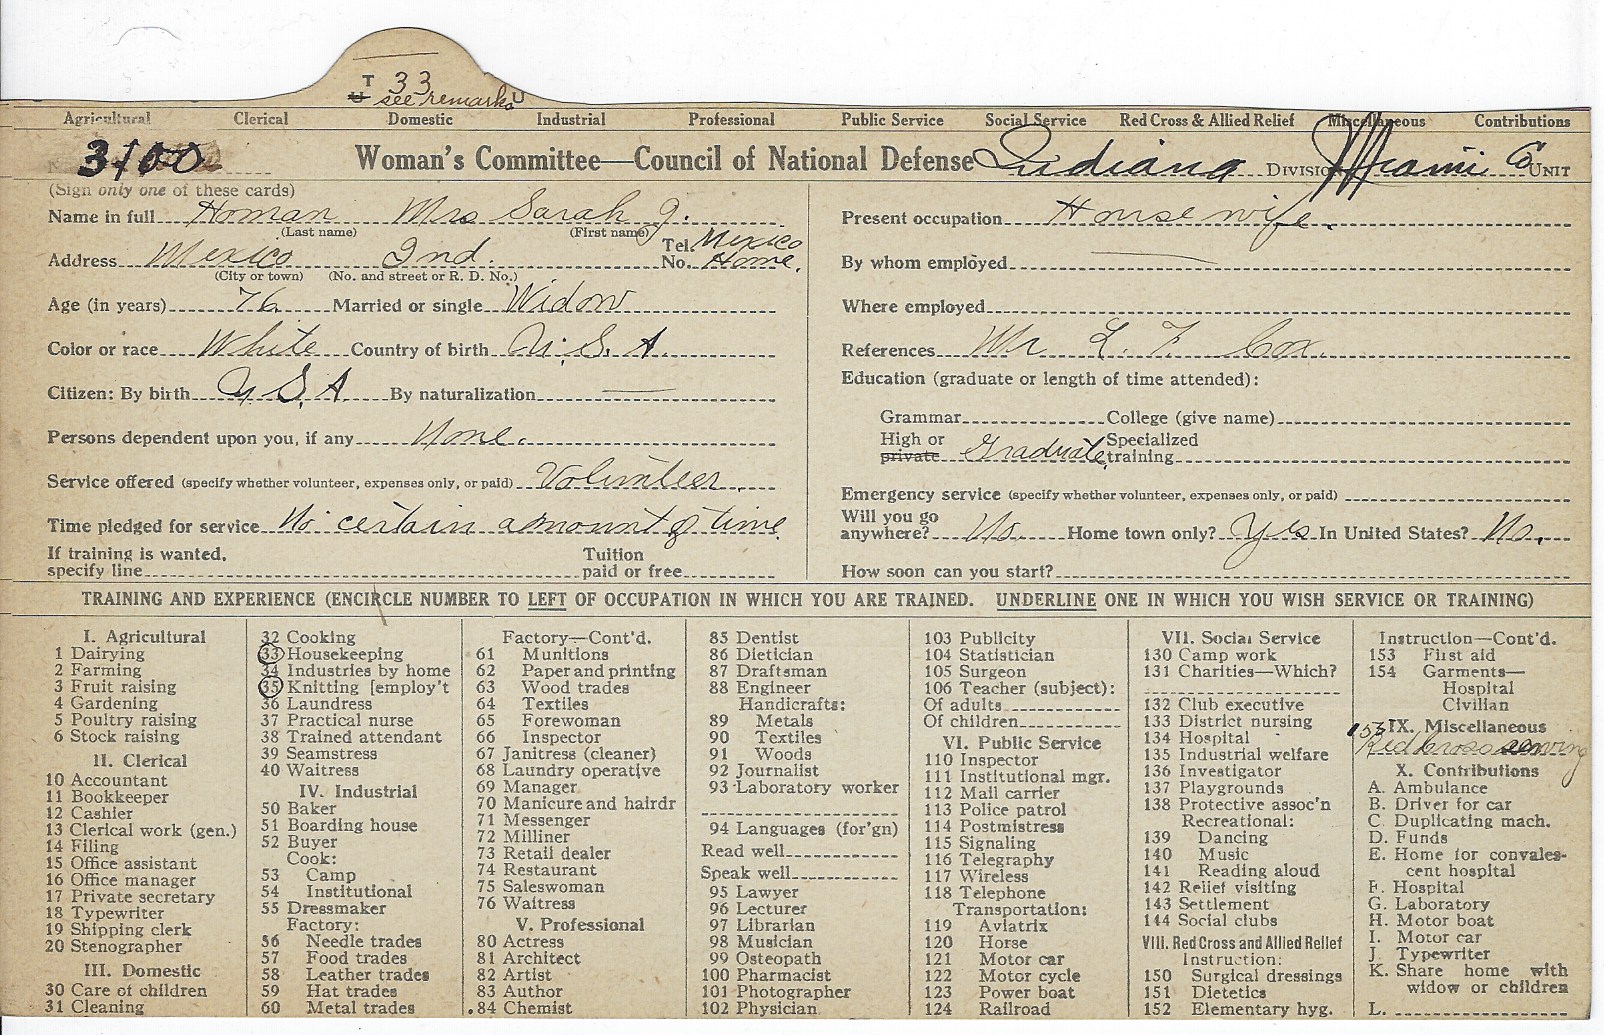 T 33
U see remarks U
Agricultural Clerical Domestic Industrial Professional Public Service Social Service Red Cross & Allied Relief Miscellaneous Contributions
3100 Woman's Committee—Council of National Defense Indiana DIVISION Miami Co. UNIT
(Sign only one of these cards)
Name in full Homan Mrs Sarah J.
(Last name) (First name)
Address Mexico Ind. Tel. No. Mexico Home.
(City or town) (No. and street or R. D. No.)
Age (in years) 76 Married or single Widow
Color or race White Country of birth U. S. A.
Citizen: By birth U S. A. By naturalization —
Persons dependent upon you, if any None.
Service offered (specify whether volunteer, expenses only, or paid) Volunteer
Time pledged for service No certain amount of time
If training is wanted, specify line Tuition paid or free
Present occupation Housewife.
By whom employed —
Where employed
References Mr L. F. Cox.
Education (graduate or length of time attended):
Grammar College (give name)
High or private Graduate Specialized training
Emergency service (specify whether volunteer, expenses only, or paid)
Will you go anywhere? No. Home town only? Yes In United States? No.
How soon can you start?
TRAINING AND EXPERIENCE (ENCIRCLE NUMBER TO LEFT OF OCCUPATION IN WHICH YOU ARE TRAINED. UNDERLINE ONE IN WHICH YOU WISH SERVICE OR TRAINING)
I. Agricultural
1 Dairying
2 Farming
3 Fruit raising
4 Gardening
5 Poultry raising
6 Stock raising
II. Clerical
10 Accountant
11 Bookkeeper
12 Cashier
13 Clerical work (gen.)
14 Filing
15 Office assistant
16 Office manager
17 Private secretary
18 Typewriter
19 Shipping clerk
20 Stenographer
III. Domestic
30 Care of children
31 Cleaning
32 Cooking
33 Housekeeping
34 Industries by home
35 Knitting [employ't
36 Laundress
37 Practical nurse
38 Trained attendant
39 Seamstress
40 Waitress
IV. Industrial
50 Baker
51 Boarding house
52 Buyer
Cook:
53 Camp
54 Institutional
55 Dressmaker
Factory:
56 Needle trades
57 Food trades
58 Leather trades
59 Hat trades
60 Metal trades
Factory—Cont'd.
61 Munitions
62 Paper and printing
63 Wood trades
64 Textiles
65 Forewoman
66 Inspector
67 Janitress (cleaner)
68 Laundry operative
69 Manager
70 Manicure and hairdr
71 Messenger
72 Milliner
73 Retail dealer
74 Restaurant
75 Saleswoman
76 Waitress
V. Professional
80 Actress
81 Architect
82 Artist
83 Author
84 Chemist
85 Dentist
86 Dietician
87 Draftsman
88 Engineer
Handicrafts:
89 Metals
90 Textiles
91 Woods
92 Journalist
93 Laboratory worker
94 Languages (for'gn)
Read well
Speak well
95 Lawyer
96 Lecturer
97 Librarian
98 Musician
99 Osteopath
100 Pharmacist
101 Photographer
102 Physician
103 Publicity
104 Statistician
105 Surgeon
106 Teacher (subject):
Of adults
Of children
VI. Public Service
110 Inspector
111 Institutional mgr.
112 Mail carrier
113 Police patrol
114 Postmistress
115 Signaling
116 Telegraphy
117 Wireless
118 Telephone
Transportation:
119 Aviatrix
120 Horse
121 Motor car
122 Motor cycle
123 Power boat
124 Railroad
VII. Social Service
130 Camp work
131 Charities—Which?
132 Club executive
133 District nursing
134 Hospital
135 Industrial welfare
136 Investigator
137 Playgrounds
138 Protective assoc'n
Recreational:
139 Dancing
140 Music
141 Reading aloud
142 Relief visiting
143 Settlement
144 Social clubs
VIII. Red Cross and Allied Relief
Instruction:
150 Surgical dressings
151 Dietetics
152 Elementary hyg.
Instruction—Cont'd.
153 First aid
154 Garments—
Hospital
Civilian
IX. Miscellaneous
Red Cross sewing
X. Contributions
A. Ambulance
B. Driver for car
C. Duplicating mach.
D. Funds
E. Home for convales-
cent hospital
F. Hospital
G. Laboratory
H. Motor boat
I. Motor car
J. Typewriter
K. Share home with
widow or children
L.